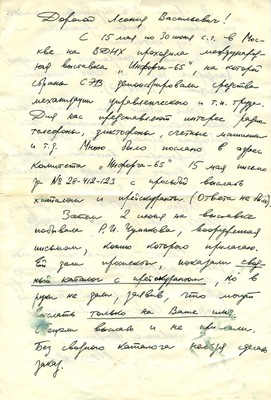 Дорогой Леонид Васильевич!
С 15 мая по 30 июня с.г. в Мос-
кве на ВДНХ проходила международ-
ная выставка „Инфорга-65", на которой
страны СЭВ демонстрировали средства
механизации управленческого и т.н. труда.
Для нас представляют интерес радио-
телефоны, диктофоны, счетные машинки
и т.д. Мною было послано в адрес
Комитета „Инфорга-65" 15 мая письмо
за № 28-412-123 с просьбой выслать
каталоги и прейскуранты (Ответа не было).
Затем 2 июня на выставке
побывала Р.И. Чумакова, вооруженная
письмом, копию которого прилагаю.
Ей дали проспекты, показали свод-
ный каталог с прейскурантом, но в
руки не дали, заявив, что могут
выслать только на Ваше имя.
Обещали выслать и не прислали.
Без сводного каталога нельзя сделать
заказ.